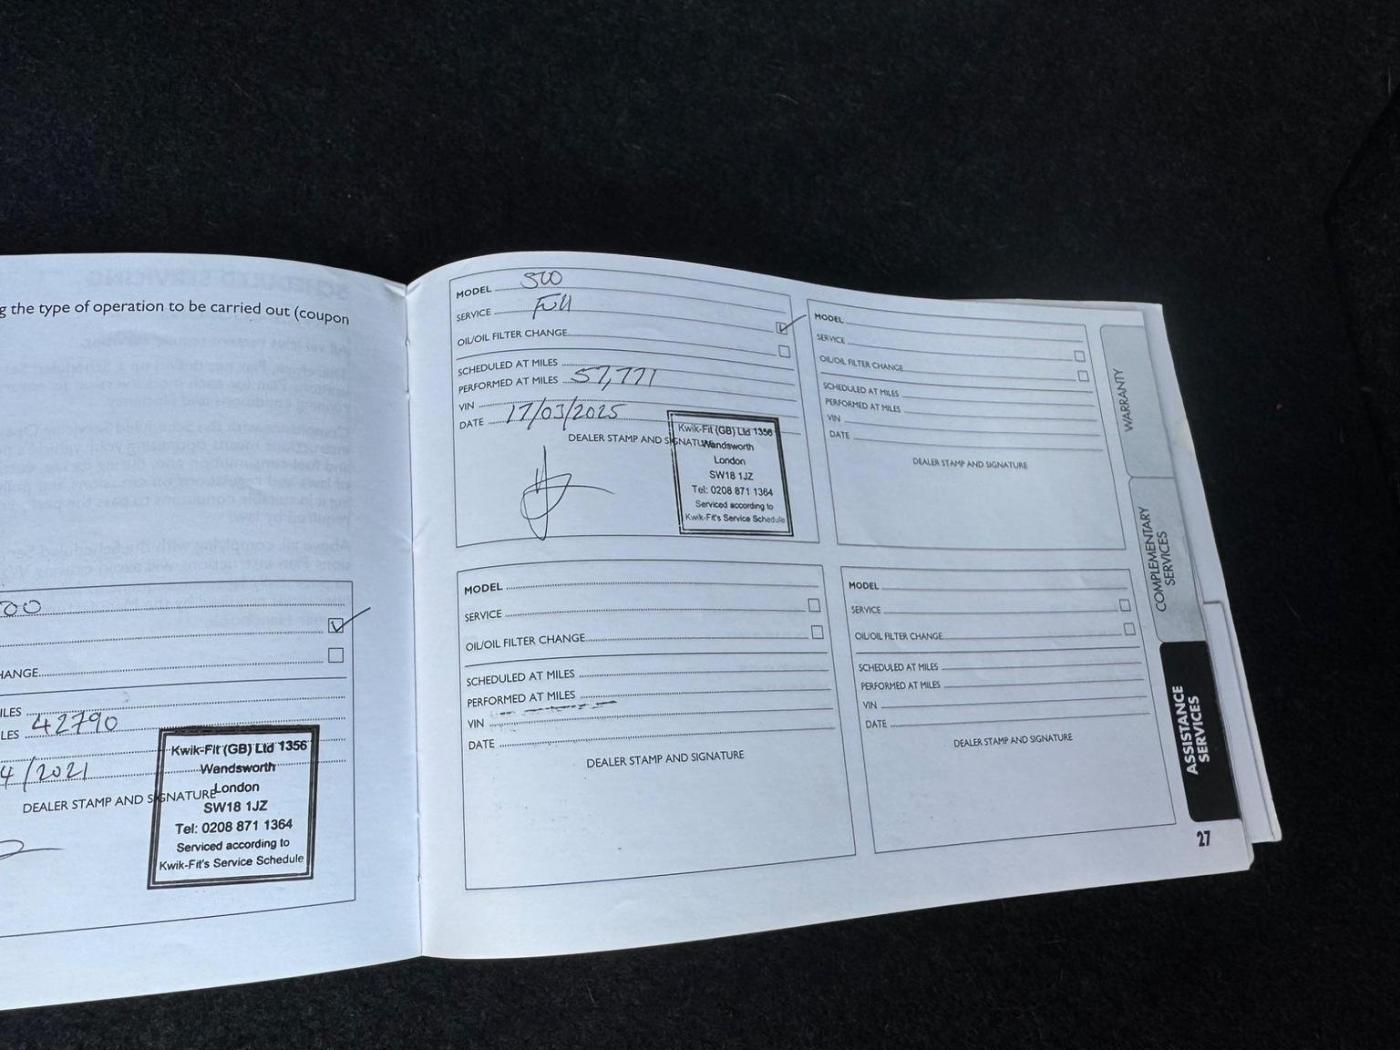 g the type of operation to be carried out (coupon
00
HANGE
ILES
LES 42790
4/2021
DEALER STAMP AND SIGNATURE
Kwik-Fit (GB) Ltd 1356
Wandsworth
London
SW18 1JZ
Tel: 0208 871 1364
Serviced according to
Kwik-Fit's Service Schedule
MODEL 500
SERVICE Full
OIL/OIL FILTER CHANGE
SCHEDULED AT MILES
PERFORMED AT MILES 57,771
VIN
DATE 17/03/2025
DEALER STAMP AND SIGNATURE
Kwik-Fit (GB) Ltd 1356
Wandsworth
London
SW18 1JZ
Tel: 0208 871 1364
Serviced according to
Kwik-Fit's Service Schedule
MODEL
SERVICE
OIL/OIL FILTER CHANGE
SCHEDULED AT MILES
PERFORMED AT MILES
VIN
DATE
DEALER STAMP AND SIGNATURE
MODEL
SERVICE
OIL/OIL FILTER CHANGE
SCHEDULED AT MILES
PERFORMED AT MILES
VIN
DATE
DEALER STAMP AND SIGNATURE
MODEL
SERVICE
OIL/OIL FILTER CHANGE
SCHEDULED AT MILES
PERFORMED AT MILES
VIN
DATE
DEALER STAMP AND SIGNATURE
WARRANTY
COMPLEMENTARY
SERVICES
ASSISTANCE
SERVICES
27